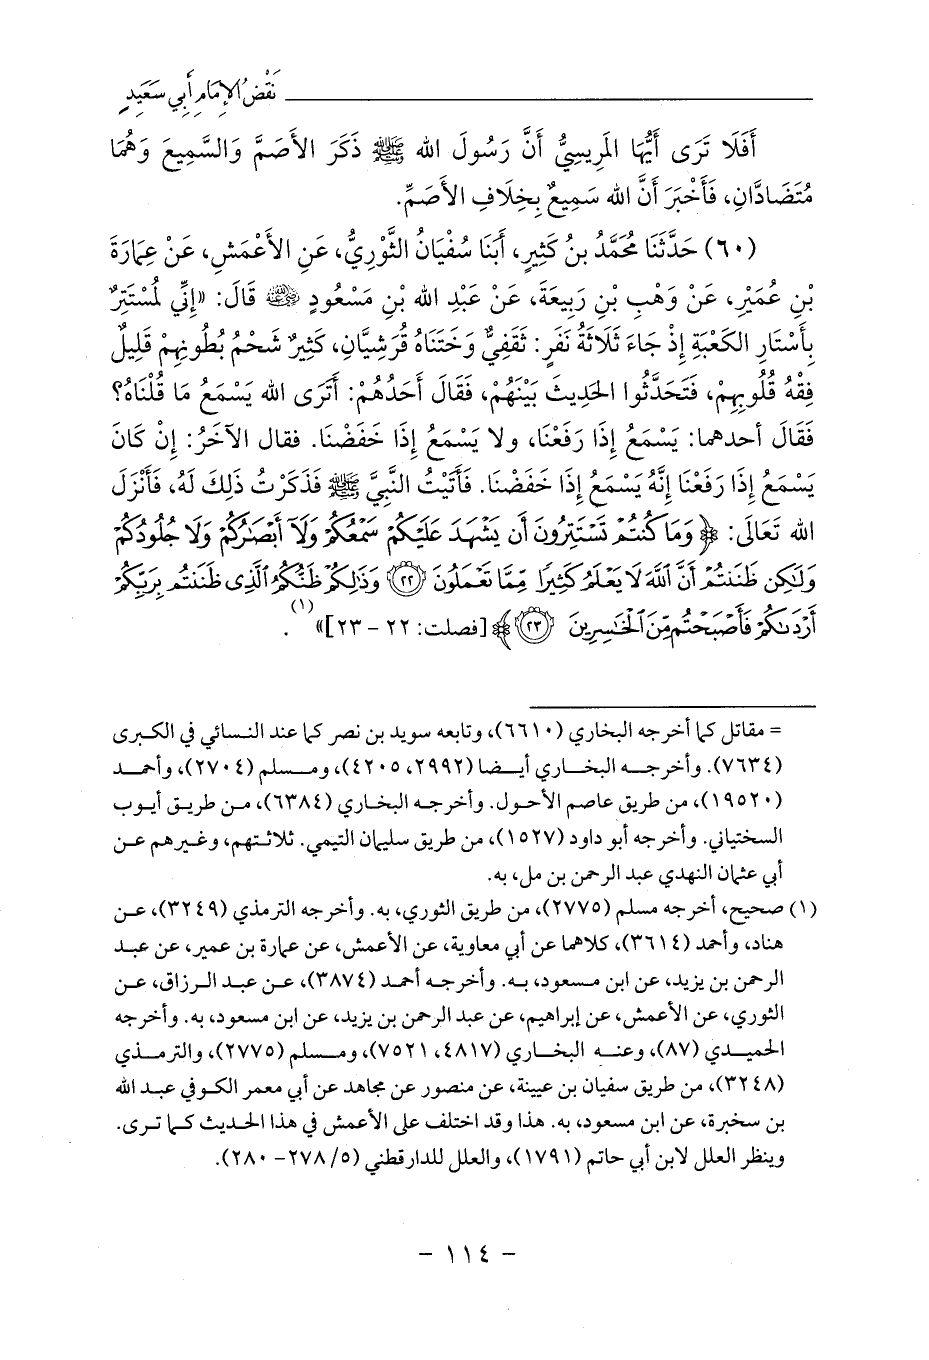 نَقْضُ الإِمَامِ أَبِي سَعِيدٍ
أَفَلَا تَرَى أَيُّهَا المَرِيسِيُّ أَنَّ رَسُولَ الله ﷺ ذَكَرَ الأَصَمَّ وَالسَّمِيعَ وَهُمَا
مُتَضَادَّانِ، فَأَخْبَرَ أَنَّ الله سَمِيعٌ بِخِلَافِ الأَصَمِّ.
(٦٠) حَدَّثَنَا مُحَمَّدُ بنُ كَثِيرٍ، أَبَنَا سُفْيَانُ الثَّوْرِيُّ، عَنِ الأَعْمَشِ، عَنْ عِمَارَةَ
بْنِ عُمَيْرٍ، عَنْ وَهْبِ بْنِ رَبِيعَةَ، عَنْ عَبْدِ الله بْنِ مَسْعُودٍ رضي الله عنه قَالَ: «إِنِّي لَمُسْتَتِرٌ
بِأَسْتَارِ الكَعْبَةِ إِذْ جَاءَ ثَلَاثَةُ نَفَرٍ: ثَقَفِيٌّ وَخَتَنَاهُ قُرَشِيَّانِ، كَثِيرٌ شَحْمُ بُطُونِهِمْ قَلِيلٌ
فِقْهُ قُلُوبِهِمْ، فَتَحَدَّثُوا الحَدِيثَ بَيْنَهُمْ، فَقَالَ أَحَدُهُمْ: أَتَرَى الله يَسْمَعُ مَا قُلْنَاهُ؟
فَقَالَ أحدهما: يَسْمَعُ إِذَا رَفَعْنَا، ولا يَسْمَعُ إِذَا خَفَضْنَا. فقال الآخَرُ: إِنْ كَانَ
يَسْمَعُ إِذَا رَفَعْنَا إِنَّهُ يَسْمَعُ إِذَا خَفَضْنَا. فَأَتَيْتُ النَّبِيَّ ﷺ فَذَكَرْتُ ذَلِكَ لَهُ، فَأَنْزَلَ
الله تَعَالَى: ﴿وَمَا كُنتُمْ تَسْتَتِرُونَ أَن يَشْهَدَ عَلَيْكُمْ سَمْعُكُمْ وَلَآ أَبْصَٰرُكُمْ وَلَا جُلُودُكُمْ
وَلَٰكِن ظَنَنتُمْ أَنَّ ٱللَّهَ لَا يَعْلَمُ كَثِيرًا مِّمَّا تَعْمَلُونَ ٢٢ وَذَٰلِكُمْ ظَنُّكُمُ ٱلَّذِى ظَنَنتُم بِرَبِّكُمْ
أَرْدَىٰكُمْ فَأَصْبَحْتُم مِّنَ ٱلْخَٰسِرِينَ ٢٣﴾ [فصلت: ٢٢ - ٢٣]» (١).
= مقاتل كما أخرجه البخاري (٦٦١٠)، وتابعه سويد بن نصر كما عند النسائي في الكبرى
(٧٦٣٤). وأخرجه البخاري أيضا (٢٩٩٢، ٤٢٠٥)، ومسلم (٢٧٠٤)، وأحمد
(١٩٥٢٠)، من طريق عاصم الأحول. وأخرجه البخاري (٦٣٨٤)، من طريق أيوب
السختياني. وأخرجه أبو داود (١٥٢٧)، من طريق سليمان التيمي. ثلاثتهم، وغيرهم عن
أبي عثمان النهدي عبد الرحمن بن مل، به.
(١) صحيح، أخرجه مسلم (٢٧٧٥)، من طريق الثوري، به. وأخرجه الترمذي (٣٢٤٩)، عن
هناد، وأحمد (٣٦١٤)، كلاهما عن أبي معاوية، عن الأعمش، عن عمارة بن عمير، عن عبد
الرحمن بن يزيد، عن ابن مسعود، به. وأخرجه أحمد (٣٨٧٤)، عن عبد الرزاق، عن
الثوري، عن الأعمش، عن إبراهيم، عن عبد الرحمن بن يزيد، عن ابن مسعود، به. وأخرجه
الحميدي (٨٧)، وعنه البخاري (٤٨١٧، ٧٥٢١)، ومسلم (٢٧٧٥)، والترمذي
(٣٢٤٨)، من طريق سفيان بن عيينة، عن منصور عن مجاهد عن أبي معمر الكوفي عبد الله
بن سخبرة، عن ابن مسعود، به. هذا وقد اختلف على الأعمش في هذا الحديث كما ترى.
وينظر العلل لابن أبي حاتم (١٧٩١)، والعلل للدارقطني (٥/ ٢٧٨- ٢٨٠).
- ١١٤ -